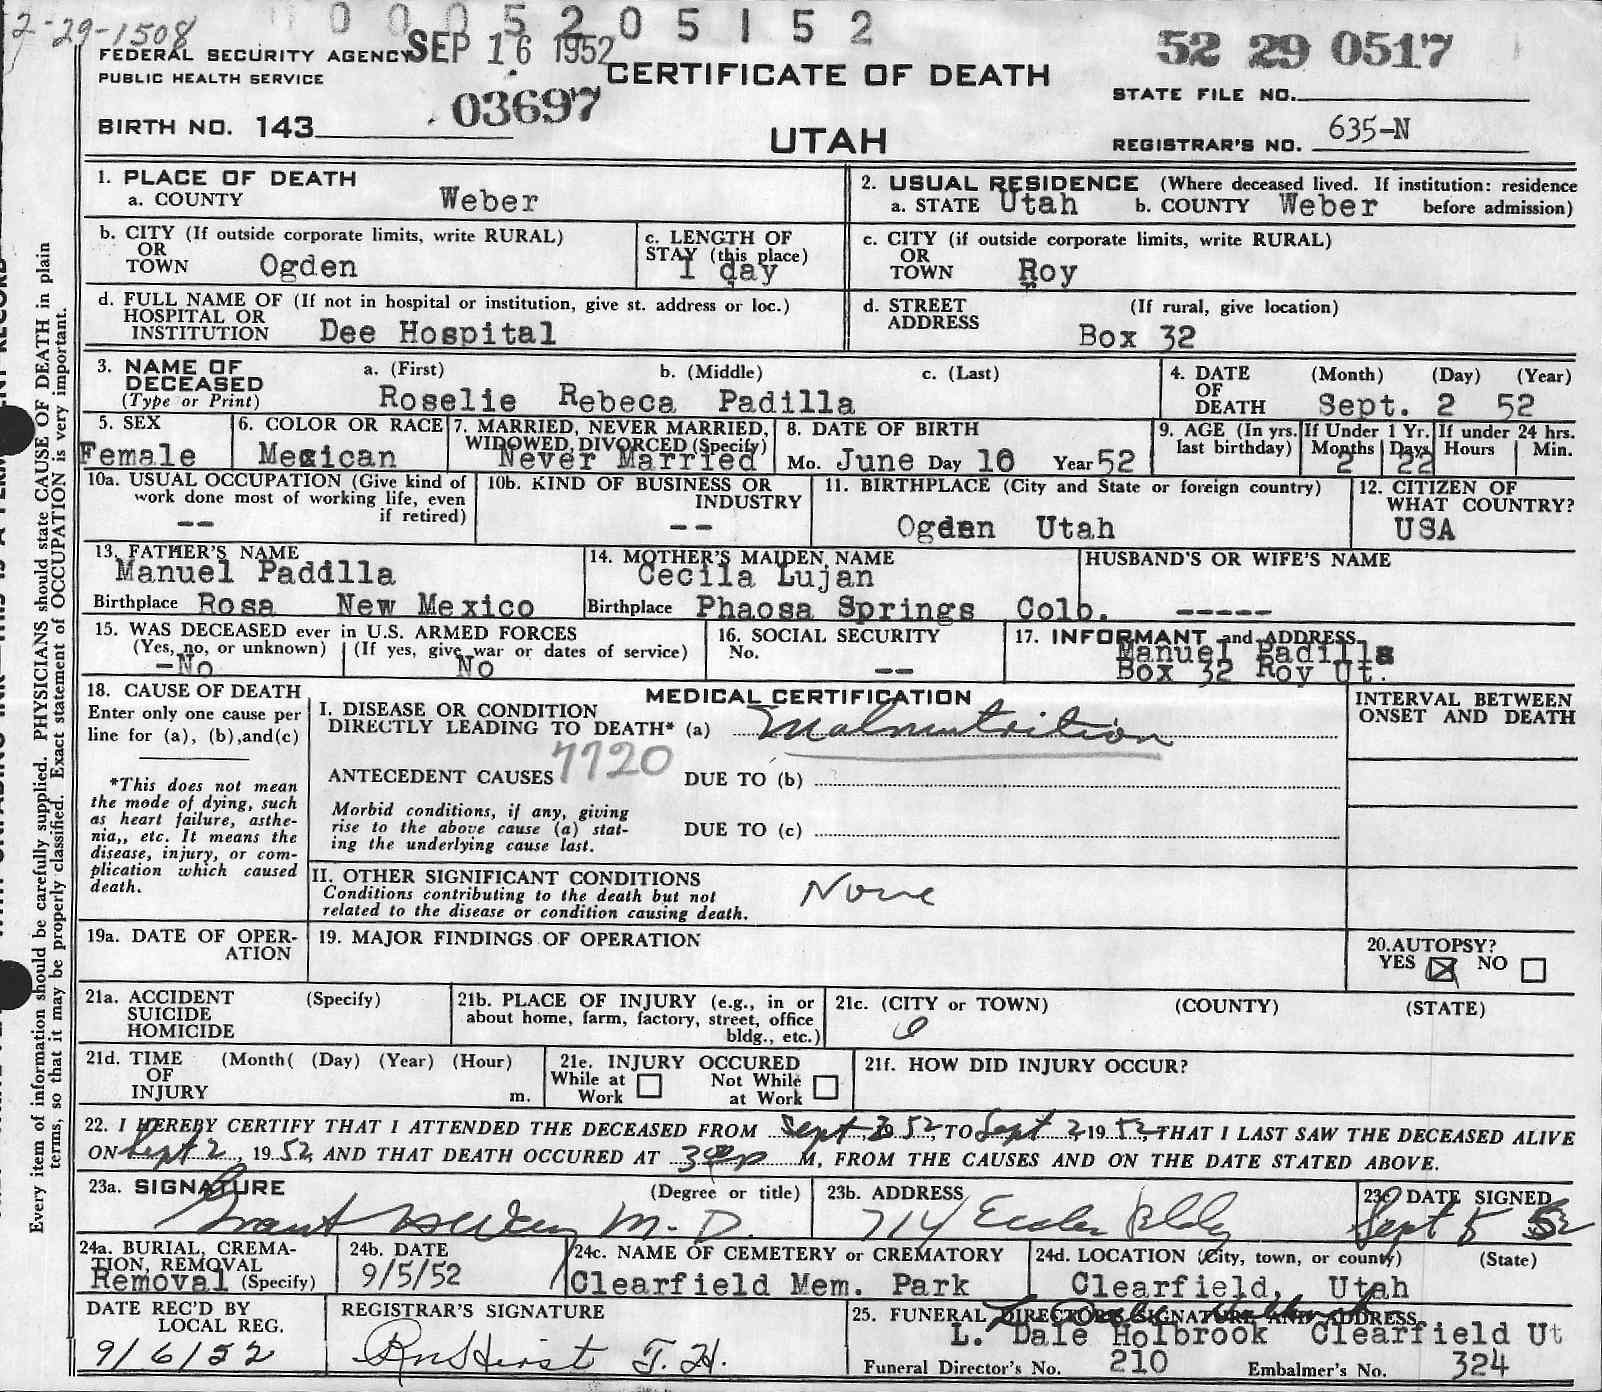 2-29-1508
0 0 0 5 2 0 5 1 5 2
FEDERAL SECURITY AGENCY SEP 16 1952
PUBLIC HEALTH SERVICE
CERTIFICATE OF DEATH
52 29 0517
STATE FILE NO.
BIRTH NO. 143
03697
UTAH
REGISTRAR'S NO. 635-N
1. PLACE OF DEATH
a. COUNTY Weber
2. USUAL RESIDENCE (Where deceased lived. If institution: residence
a. STATE Utah b. COUNTY Weber before admission)
b. CITY (If outside corporate limits, write RURAL)
OR
TOWN Ogden
c. LENGTH OF
STAY (this place)
1 day
c. CITY (if outside corporate limits, write RURAL)
OR
TOWN Roy
d. FULL NAME OF (If not in hospital or institution, give st. address or loc.)
HOSPITAL OR
INSTITUTION Dee Hospital
d. STREET (If rural, give location)
ADDRESS Box 32
3. NAME OF a. (First) b. (Middle) c. (Last)
DECEASED
(Type or Print) Roselie Rebeca Padilla
4. DATE (Month) (Day) (Year)
OF
DEATH Sept. 2 52
5. SEX
Female
6. COLOR OR RACE
Mexican
7. MARRIED, NEVER MARRIED,
WIDOWED, DIVORCED (Specify)
Never Married
8. DATE OF BIRTH
Mo. June Day 10 Year 52
9. AGE (In yrs.
last birthday)
If Under 1 Yr.
Months Days
2 22
If under 24 hrs.
Hours Min.
10a. USUAL OCCUPATION (Give kind of
work done most of working life, even
if retired)
--
10b. KIND OF BUSINESS OR
INDUSTRY
--
11. BIRTHPLACE (City and State or foreign country)
Ogden Utah
12. CITIZEN OF
WHAT COUNTRY?
USA
13. FATHER'S NAME
Manuel Padilla
Birthplace Rosa New Mexico
14. MOTHER'S MAIDEN NAME
Cecila Lujan
Birthplace Phaosa Springs Colo.
HUSBAND'S OR WIFE'S NAME
-----
15. WAS DECEASED ever in U.S. ARMED FORCES
(Yes, no, or unknown) (If yes, give war or dates of service)
-No No
16. SOCIAL SECURITY
No.
--
17. INFORMANT and ADDRESS
Manuel Padilla
Box 32 Roy Ut.
18. CAUSE OF DEATH
Enter only one cause per
line for (a), (b),and(c)
*This does not mean
the mode of dying, such
as heart failure, asthe-
nia,, etc. It means the
disease, injury, or com-
plication which caused
death.
MEDICAL CERTIFICATION
I. DISEASE OR CONDITION
DIRECTLY LEADING TO DEATH* (a) Malnutrition
7720
ANTECEDENT CAUSES DUE TO (b)
Morbid conditions, if any, giving
rise to the above cause (a) stat- DUE TO (c)
ing the underlying cause last.
II. OTHER SIGNIFICANT CONDITIONS
Conditions contributing to the death but not
related to the disease or condition causing death.
None
INTERVAL BETWEEN
ONSET AND DEATH
19a. DATE OF OPER-
ATION
19. MAJOR FINDINGS OF OPERATION
20.AUTOPSY?
YES NO
21a. ACCIDENT (Specify)
SUICIDE
HOMICIDE
21b. PLACE OF INJURY (e.g., in or
about home, farm, factory, street, office
bldg., etc.)
21c. (CITY or TOWN) (COUNTY) (STATE)
21d. TIME (Month( (Day) (Year) (Hour)
OF
INJURY m.
21e. INJURY OCCURED
While at Not While
Work at Work
21f. HOW DID INJURY OCCUR?
22. I HEREBY CERTIFY THAT I ATTENDED THE DECEASED FROM Sept 52, TO Sept 2, 1952, THAT I LAST SAW THE DECEASED ALIVE
ON Sept 2, 1952, AND THAT DEATH OCCURED AT M, FROM THE CAUSES AND ON THE DATE STATED ABOVE.
23a. SIGNATURE (Degree or title)
Grant M.D.
23b. ADDRESS
714 Eccles Bldg
23c. DATE SIGNED
Sept 5 52
24a. BURIAL, CREMA-
TION, REMOVAL
Removal (Specify)
24b. DATE
9/5/52
24c. NAME OF CEMETERY or CREMATORY
Clearfield Mem. Park
24d. LOCATION (City, town, or county) (State)
Clearfield, Utah
DATE REC'D BY
LOCAL REG.
9/6/52
REGISTRAR'S SIGNATURE
Hirst T.H.
25. FUNERAL DIRECTOR'S SIGNATURE AND ADDRESS
L. Dale Holbrook Clearfield Ut
Funeral Director's No. 210 Embalmer's No. 324
Every item of information should be carefully supplied. PHYSICIANS should state CAUSE OF DEATH in plain
terms, so that it may be properly classified. Exact statement of OCCUPATION is very important.